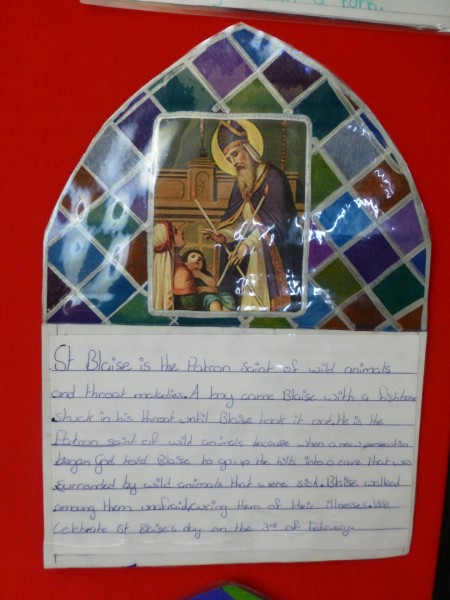 a York.
St Blaise is the Patron saint of wild animals
and throat maladies. A boy came Blaise with a fishbone
stuck in his throat until Blaise took it out. He is the
Patron saint of wild animals because when a new persecution
began God told Blaise to go up the hills into a cave that was
surrounded by wild animals that were sick. Blaise walked
among them unafraid, curing them of their illnesses. We
celebrate St Blaise's day on the 3rd of February.